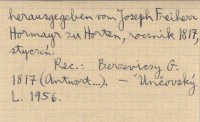 herausgegeben vom Joseph Freiherr
Hormayr zu Horten, rocznik 1817,
styczeń.
Rec.: Berzeviczy G.
1817 (Antwort...). — Unčovský
L. 1956.